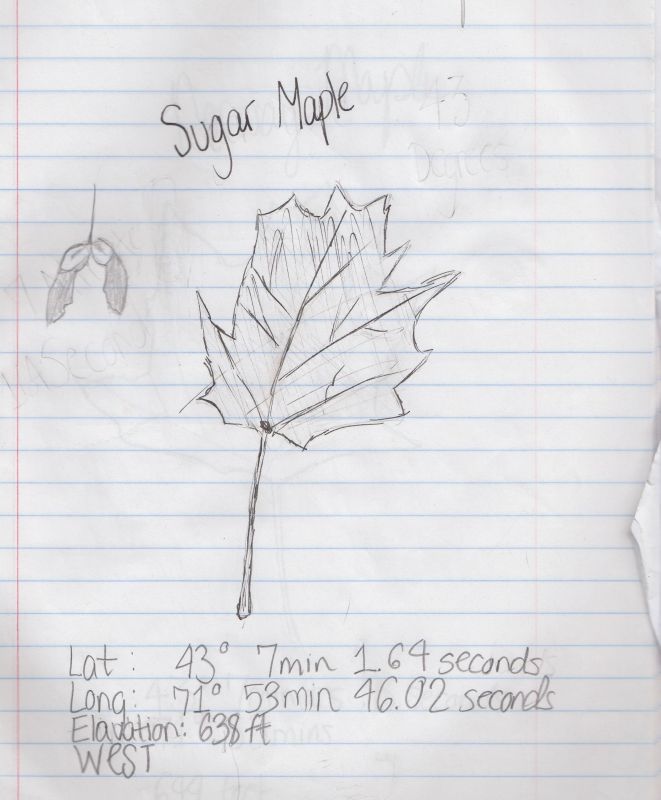 Sugar Maple
Lat: 43° 7min 1.64 seconds
Long: 71° 53min 46.02 seconds
Elavation: 638 ft
WEST